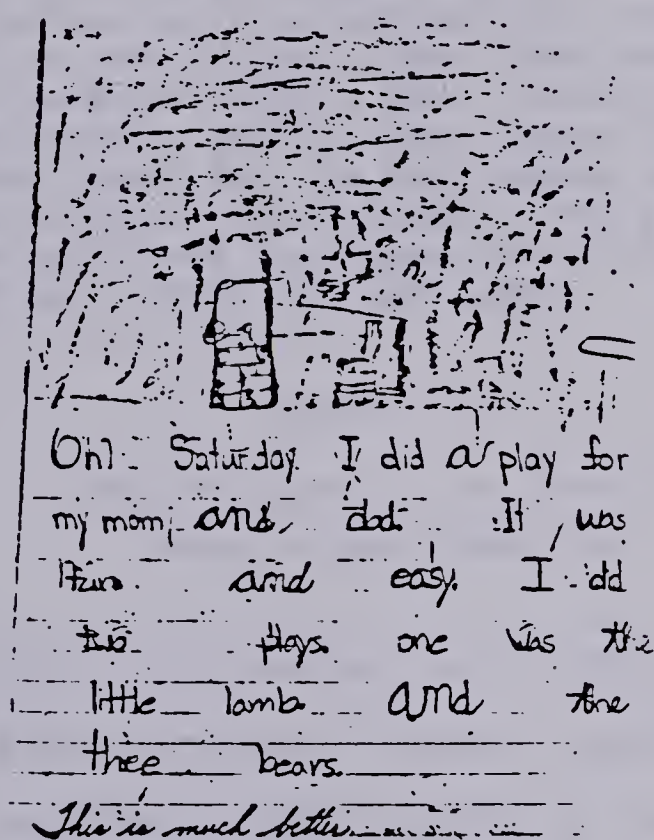 On Saturday I did a play for
my mom and dad. It was
fun and easy. I did
two plays. one was the
little lamb and the
three bears.
This is much better.